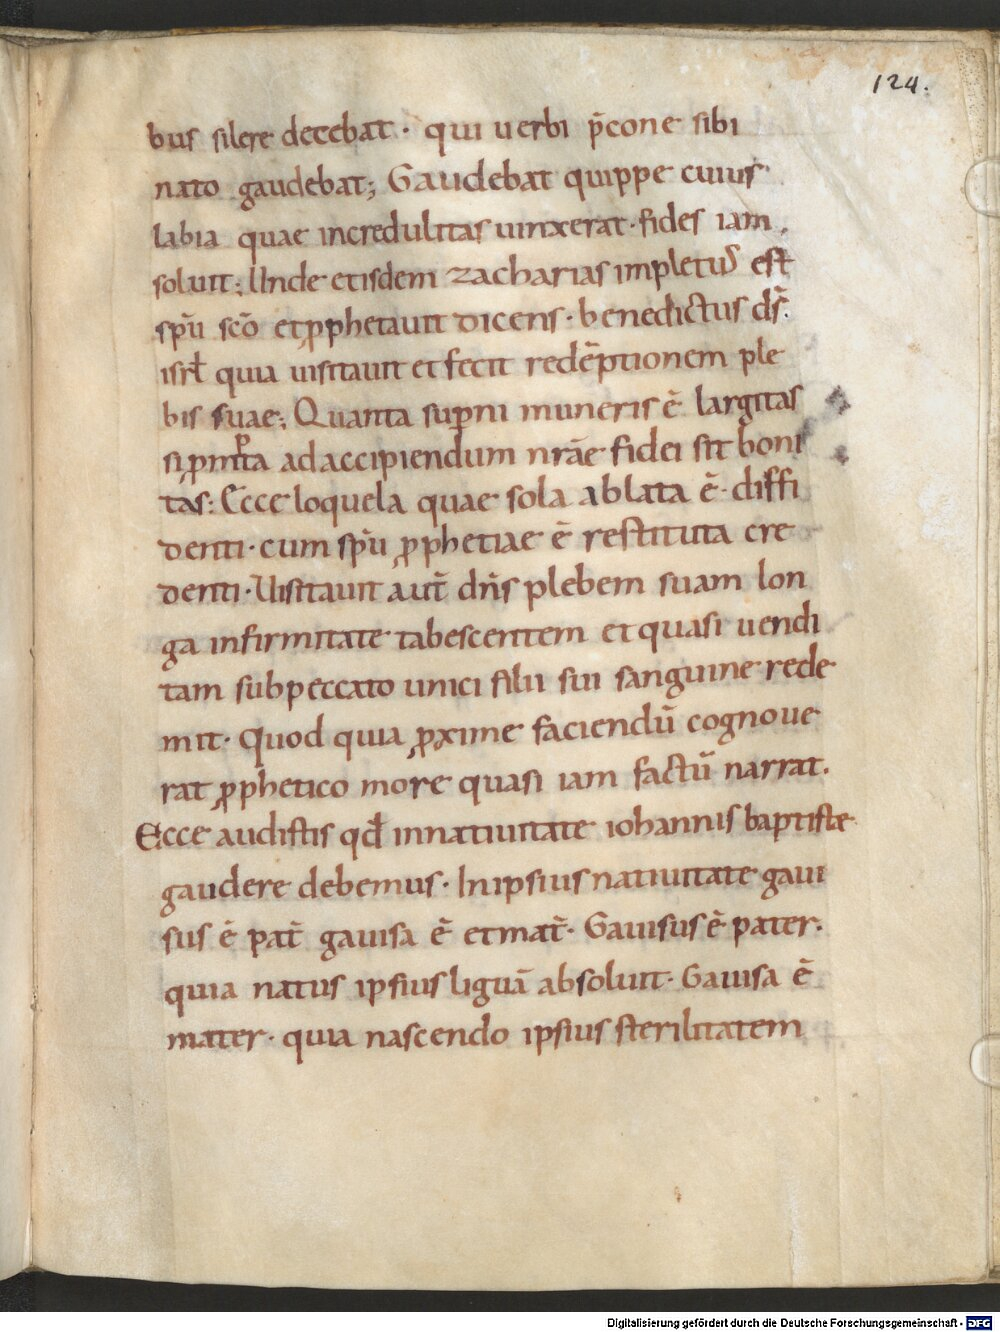 124.
bus silere decebat · qui uerbi p̄cone sibi
nato gaudebat; Gaudebat quippe cuius
labia quae incredulitas uinxerat · fides iam
soluit; Unde etisdem zacharias impletus est
sp̄u sc̄o et ꝓphetauit dicens · benedictus d̄s
isrł quia uisitauit et fecit redēptionem ple
bis suae; Quanta sup̄ni muneris ē largitas
si ꝓmta ad accipiendum nrāe fidei sit boni
tas: Ecce loquela quae sola ablata ē · diffi
denti · cum sp̄u ꝓphetiae ē restituta cre
denti · Uisitauit aut̄ dn̄s plebem suam lon
ga infirmitate tabescentem et quasi uendi
tam sub peccato unici filii sui sanguine rede
mit · Quod quia ꝓxime faciendū cognoue
rat ꝓphetico more quasi iam factū narrat.
Ecce audistis qđ in natiuitate iohannis baptiste
gaudere debemus · In ipsius natiuitate gaui
sus ē pat̄ gauisa ē et mat̄ · Gauisus ē pater ·
quia natus ipsius liguā absoluit · Gauisa ē
mater · quia nascendo ipsius sterilitatem
Digitalisierung gefördert durch die Deutsche Forschungsgemeinschaft - DFG